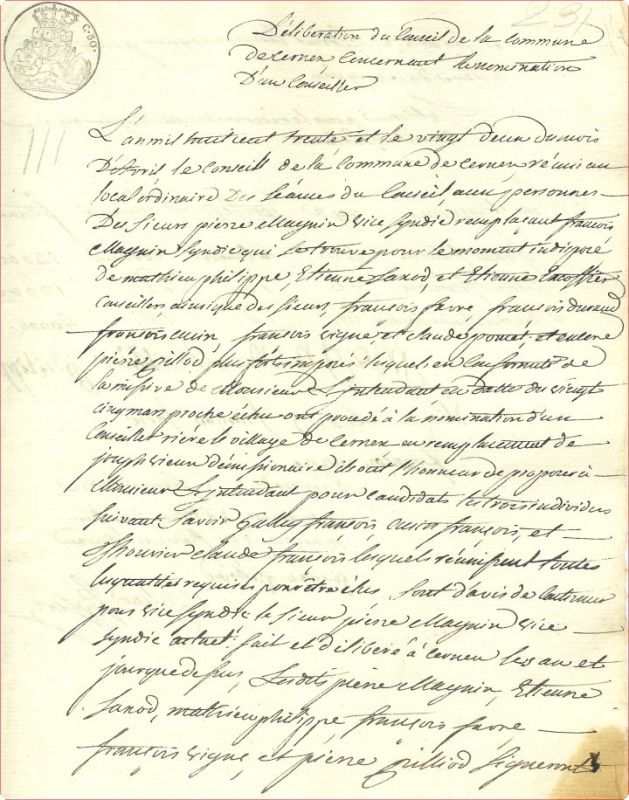 C. 80.
231
Délibération du Conseil de la Commune
de Cernex Concernant la nomination
D'un Conseiller
L'an mil huit cent trente et le vingt deux du mois
D'Avril le Conseill de la Commune de Cernex, réuni au
local ordinaire Des Séances du Conseil, aux personnes
Des Sieurs pierre Magnin vice Syndic remplaçant françois
Magnin Syndic qui se trouve pour le moment indisposé
de mathieu philippe, Etienne Sanod, et Etienne
Conseillers, ainsi que des Sieurs, françois favre, françois durand
françois Cusin, françois vigne, et claude ponet, et encore
pierre Pilliod, plus forts imposés lesquels en Conformité de
la missive de Monsieur L'intendant en datte du vingt
cinq mars proche échu ont procédé à la nomination d'un
Conseiller rière le village de Cernex en remplacement de
joseph vieux démissionaire ils ont l'honneur de proposer à
Monsieur L'intendant pour candidats les trois individus
suivant Savoir Gallay françois, cusin françois, et
claude françois lesquels réunissent toutes
les qualités requises pour être élus Sont d'avis de
pour vice Syndic le Sieur pierre Magnin vice
Syndic actuel. fait et délibéré à Cernex les an et
jour que dessus, Lesdits pierre Magnin, Etienne
Sanod, mathieu philippe françois favre
françois vigne, et pierre Pilliod Signeront